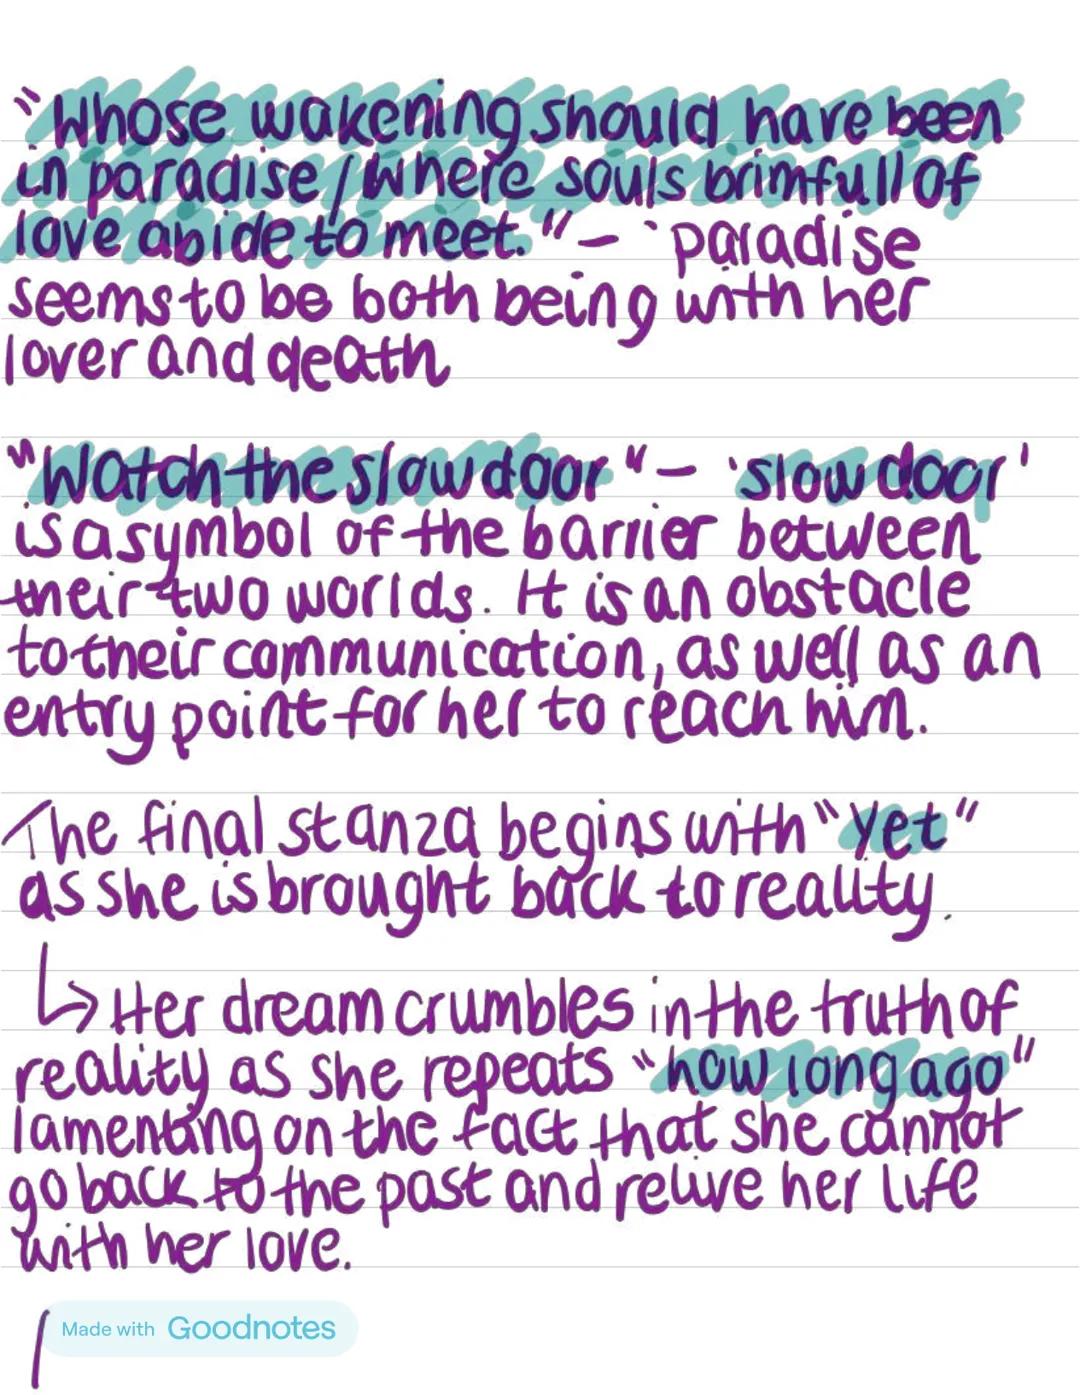 "Whose wakening should have been
in paradise / Where souls brimfull of
love abide to meet." - 'paradise
seems to be both being with her
lover and death
"Watch the slow door" - 'slow door'
is a symbol of the barrier between
their two worlds. It is an obstacle
to their communication, as well as an
entry point for her to reach him.
The final stanza begins with "Yet"
as she is brought back to reality.
↳ Her dream crumbles in the truth of
reality as she repeats "how long ago"
lamenting on the fact that she cannot
go back to the past and relive her life
with her love.
Made with Goodnotes